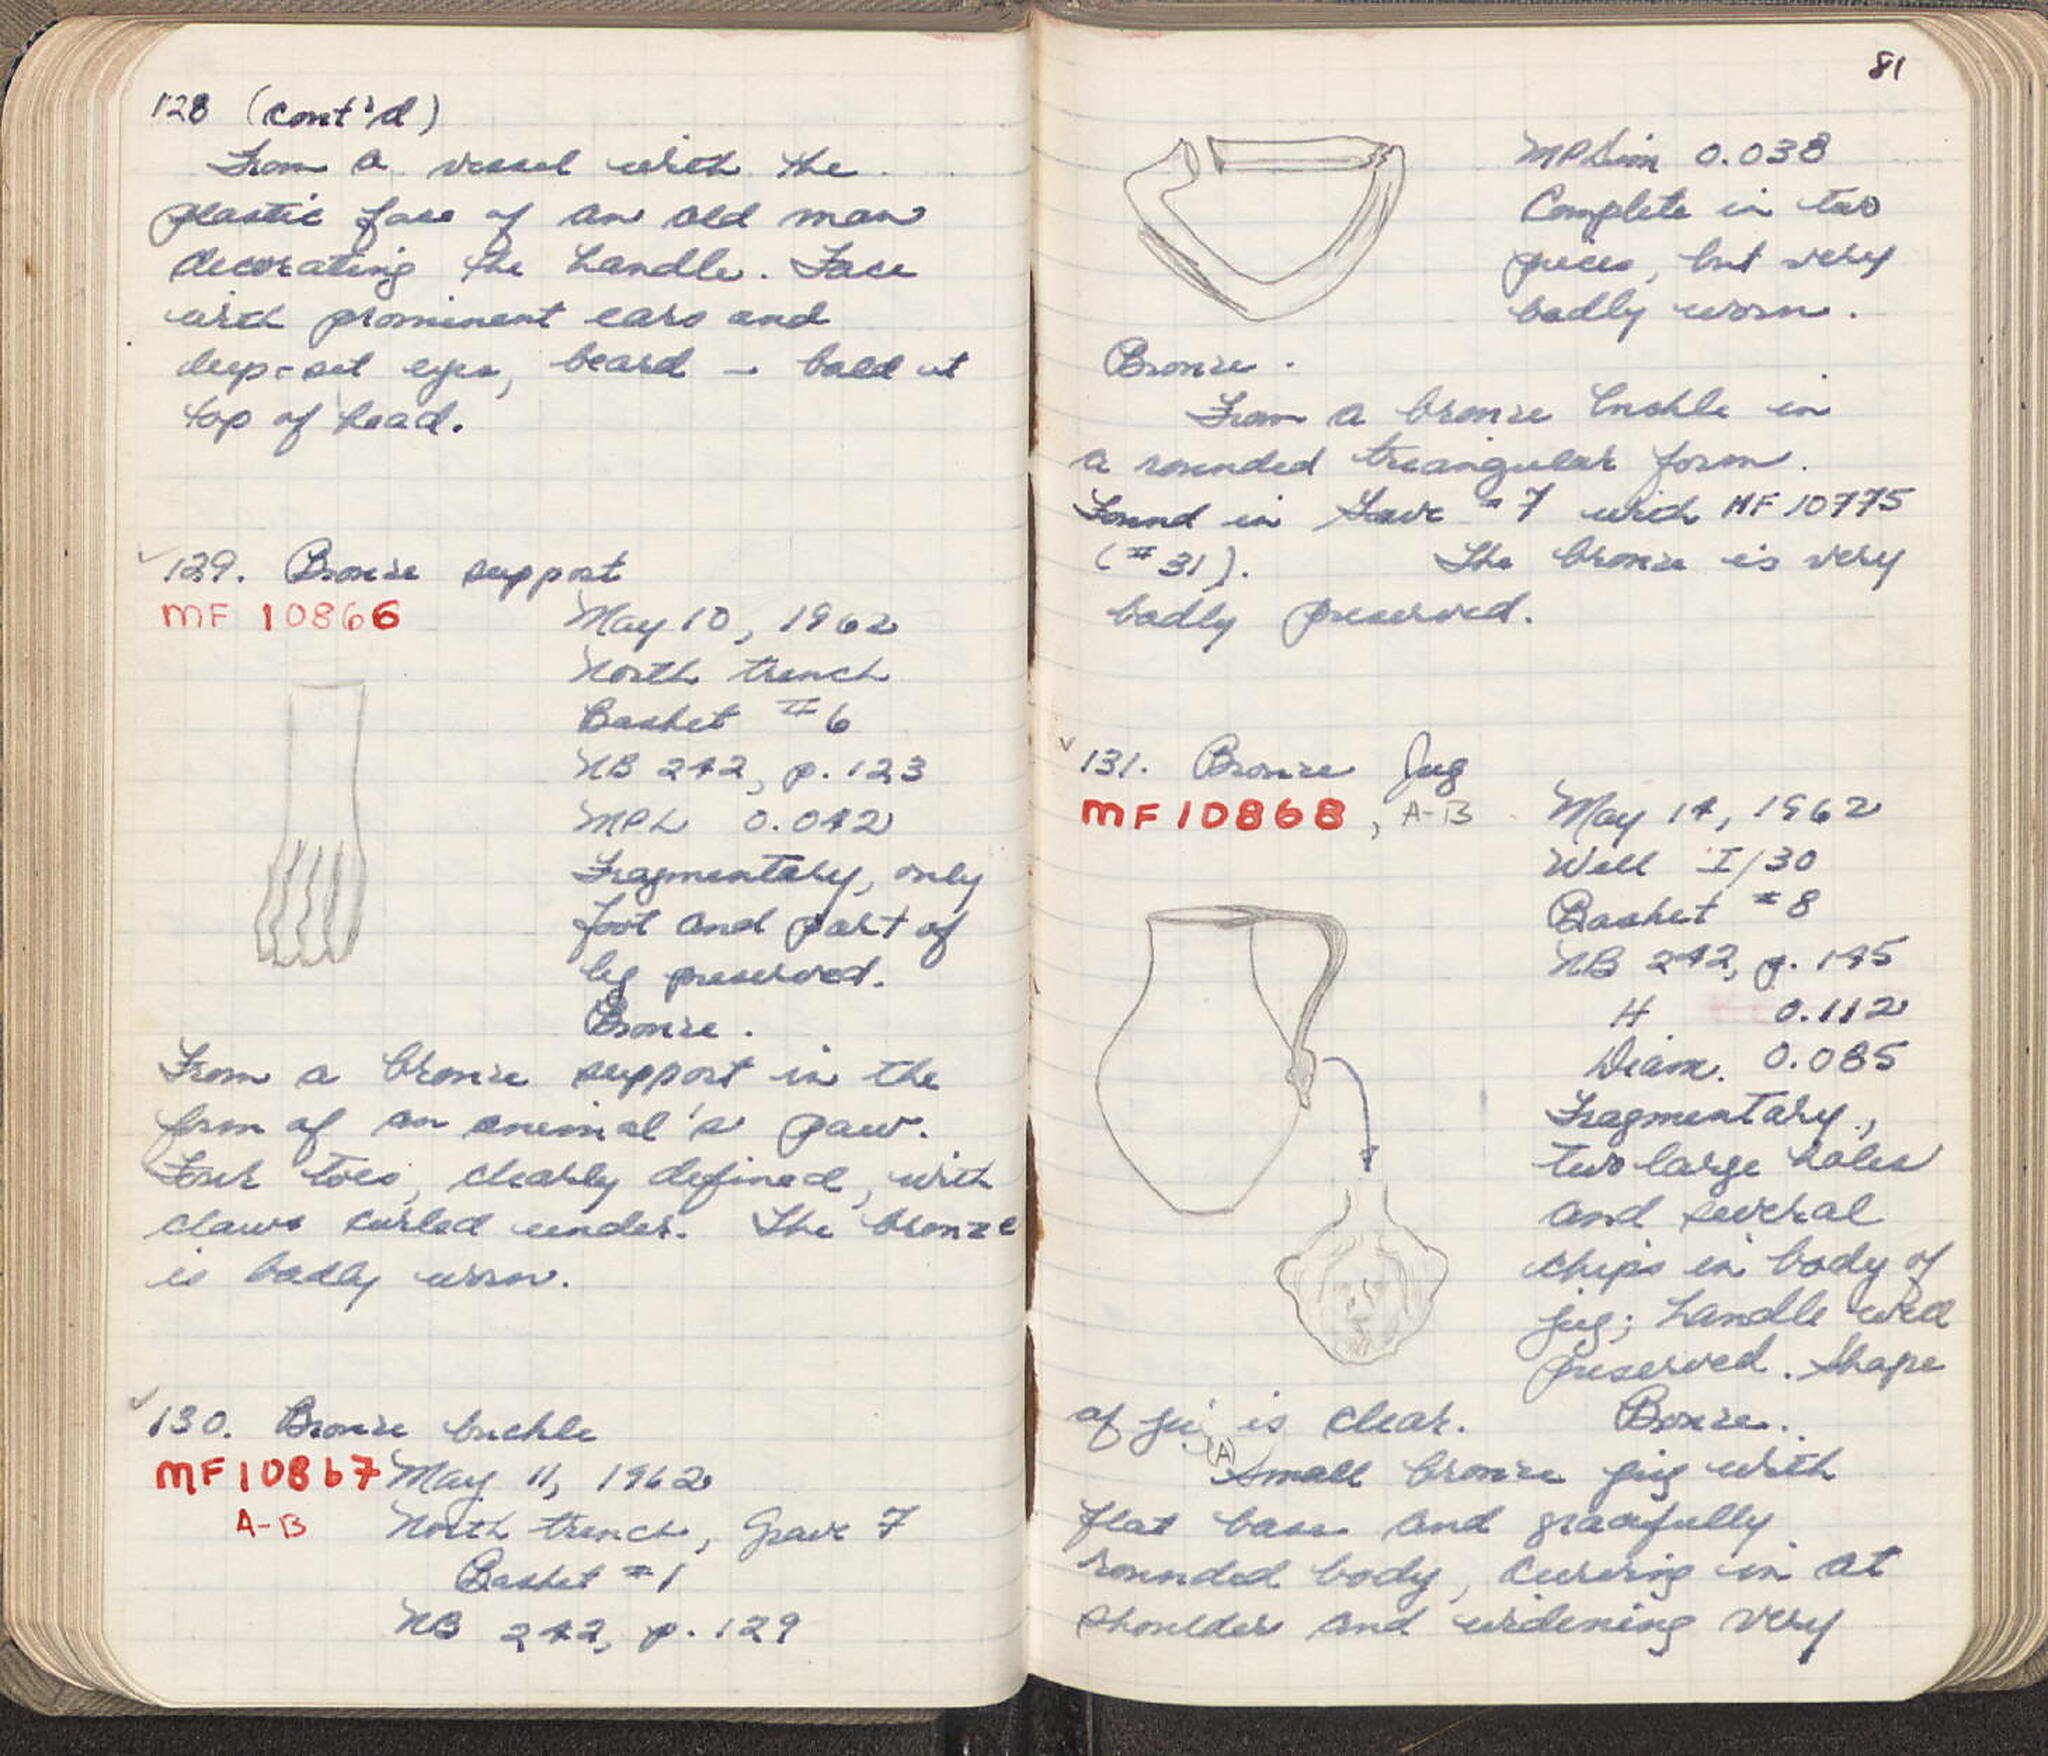 128 (cont'd)
From a vessel with the
plastic face of an old man
decorating the handle. Face
with prominent ears and
deep-set eyes, beard - bald at
top of head.
129. Bronze support
MF 10866
May 10, 1962
North trench
Basket #6
NB 242, p. 123
MPL 0.042
Fragmentary, only
foot and part of
leg preserved.
Bronze.
From a bronze support in the
form of an animal's paw.
Four toes, clearly defined, with
claws curled under. The bronze
is badly worn.
130. Bronze buckle
MF10867 May 11, 1962
A-B North trench, Grave 7
Basket #1
NB 242, p. 129
81
MPDim 0.038
Complete in two
pieces, but very
badly worn.
Bronze.
From a bronze buckle in
a rounded triangular form.
Found in Grave #7 with MF 10775
(#31). The bronze is very
badly preserved.
131. Bronze Jug
MF10868, A-B
May 14, 1962
Well I/30
Basket #8
NB 242, p. 145
H 0.112
Diam. 0.085
Fragmentary,
two large holes
and several
chips in body of
jug; handle well
preserved. Shape
of jug is clear. Bronze.
(A)
Small bronze jug with
flat base and gracefully
rounded body, curving in at
shoulder and widening very